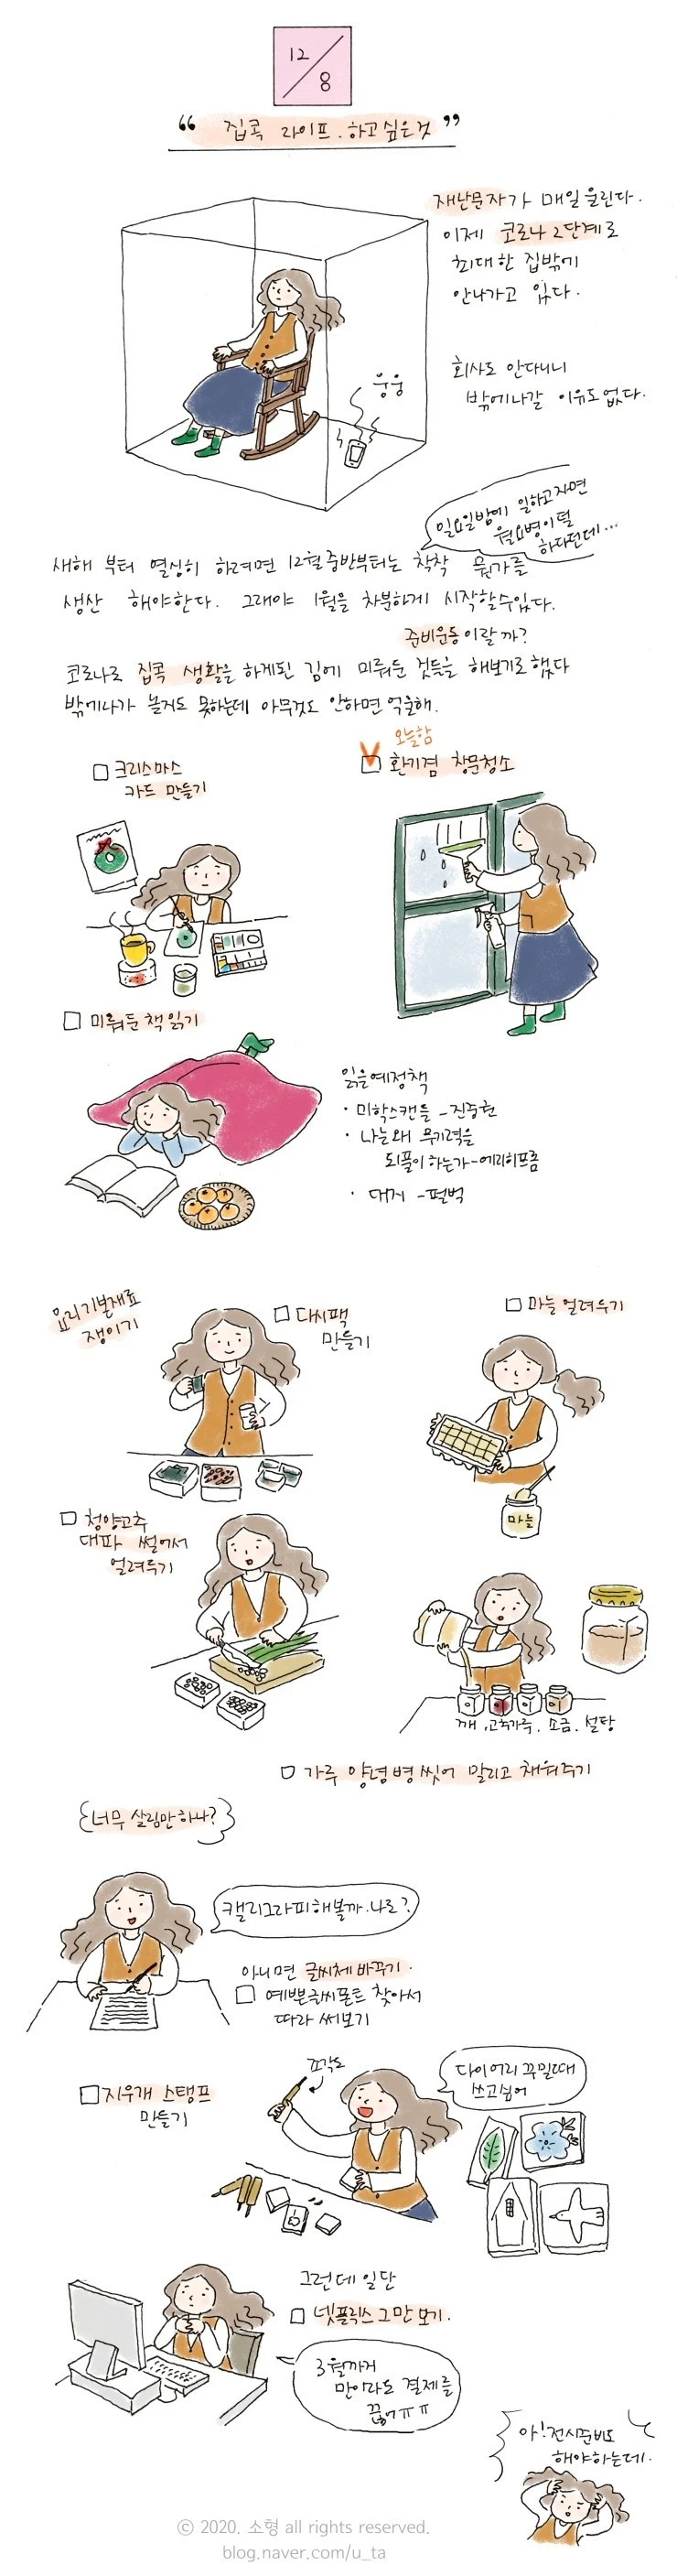 12/8
“ 집콕 라이프. 하고싶은것 ”
재난문자가 매일 울린다.
이제 코로나 2단계로
최대한 집밖에
안나가고 있다.
웅웅
회사도 안다니니
밖에나갈 이유도 없다.
일요일밤에 일하고자면
월요병이 덜
하다던데...
새해 부터 열심히 하려면 12월 중반부터는 착착 뭔가를
생산 해야한다. 그래야 1월을 차분하게 시작할수있다.
준비운동이랄까?
코로나로 집콕 생활을 하게된 김에 미뤄둔 것들을 해보기로 했다
밖에나가 놀지도 못하는데 아무것도 안하면 억울해.
크리스마스
카드 만들기
오늘함
환기겸 창문청소
미뤄둔 책 읽기
읽을예정책
· 미학스캔들 - 진중권
· 나는왜 무기력을
되풀이 하는가 - 에리히프롬
· 대지 - 펄벅
요리기본재료
쟁이기
다시팩
만들기
마늘 얼려두기
마늘
청양고추
대파 썰어서
얼려두기
깨, 고추가루, 소금, 설탕
가루 양념병 씻어 말리고 채워주기
너무 살림만하나?
캘리그라피해볼까.나도?
아니면 글씨체 바꾸기.
예쁜글씨폰트 찾아서
따라 써보기
조각도
지우개 스탬프
만들기
다이어리 꾸밀때
쓰고싶어
그런데 일단
넷플릭스 그만 보기.
3월까지
만이라도 결제를
끊어ㅠㅠ
아! 전시준비도
해야하는데.
© 2020. 소형 all rights reserved.
blog.naver.com/u_ta